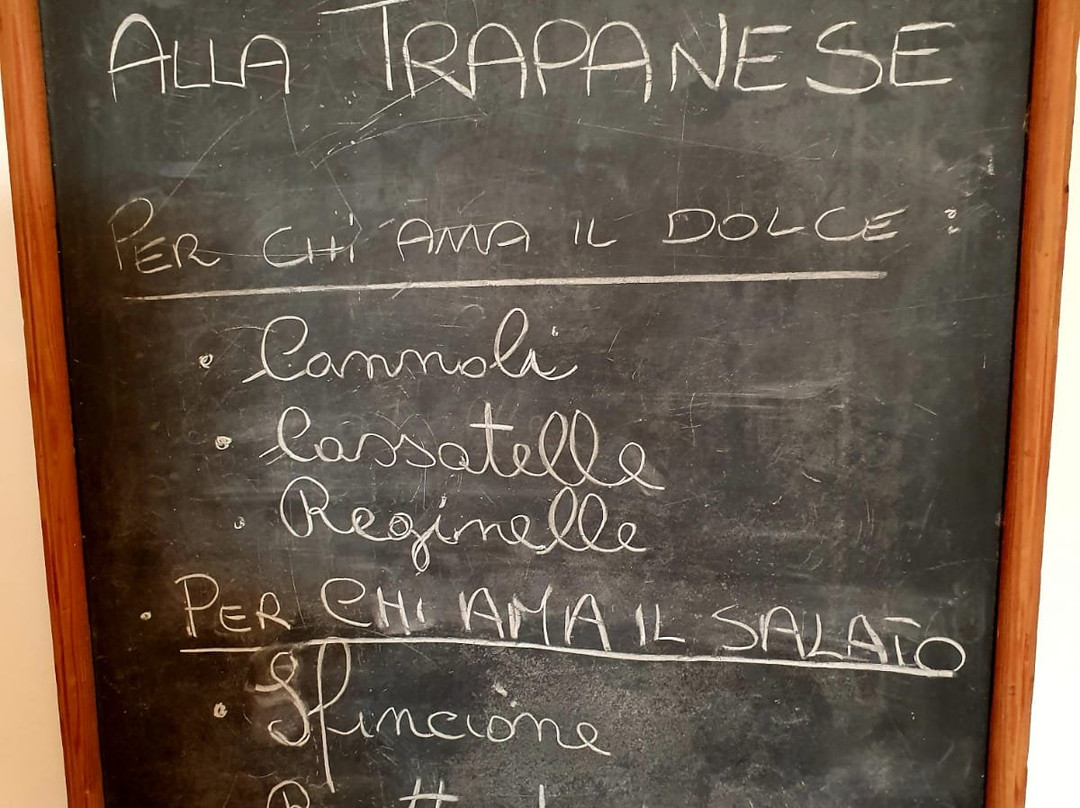 ALLA TRAPANESE
PER CHI AMA IL DOLCE:
• Cannoli
• Cassatelle
• Reginelle
• PER CHI AMA IL SALATO
• Sfincione